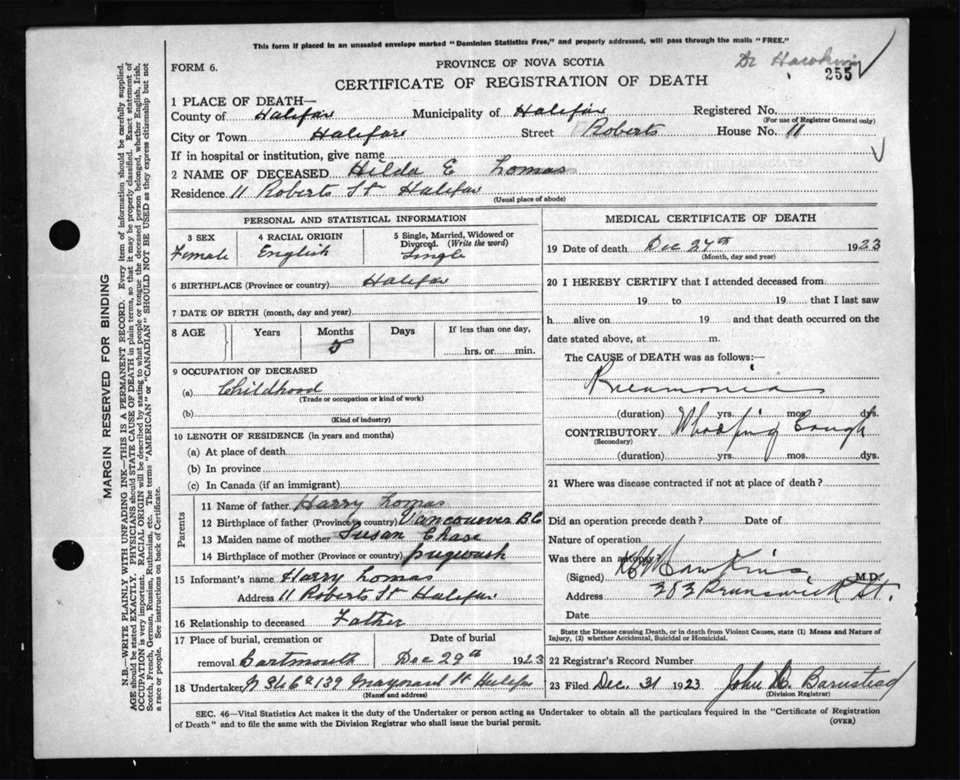 This form if placed in an unsealed envelope marked "Dominion Statistics Free," and properly addressed, will pass through the mails "FREE."
Dr Hawkins
FORM 6.
PROVINCE OF NOVA SCOTIA
255
CERTIFICATE OF REGISTRATION OF DEATH
1 PLACE OF DEATH—
County of Halifax Municipality of Halifax Registered No.
(For use of Registrar General only)
City or Town Halifax Street Roberts House No. 11
If in hospital or institution, give name
2 NAME OF DECEASED Hilda E Lomas
Residence 11 Roberts St Halifax
(Usual place of abode)
PERSONAL AND STATISTICAL INFORMATION
3 SEX 4 RACIAL ORIGIN 5 Single, Married, Widowed or Divorced (Write the word)
Female English Single
6 BIRTHPLACE (Province or country) Halifax
7 DATE OF BIRTH (month, day and year)
8 AGE Years Months Days If less than one day,
5 hrs. or min.
9 OCCUPATION OF DECEASED
(a) Childhood
(Trade or occupation or kind of work)
(b)
(Kind of industry)
10 LENGTH OF RESIDENCE (in years and months)
(a) At place of death
(b) In province
(c) In Canada (if an immigrant)
Parents
11 Name of father Harry Lomas
12 Birthplace of father (Province or country) Vancouver B.C
13 Maiden name of mother Susan Chase
14 Birthplace of mother (Province or country) pugwash
15 Informant's name Harry Lomas
Address 11 Roberts St Halifax
16 Relationship to deceased Father
17 Place of burial, cremation or Date of burial
removal Dartmouth Dec 29th 1923
18 Undertaker 139 Maynard St Halifax
(Name and address)
MEDICAL CERTIFICATE OF DEATH
19 Date of death Dec 27th 1923
(Month, day and year)
20 I HEREBY CERTIFY that I attended deceased from
19 to 19 that I last saw
h alive on 19 and that death occurred on the
date stated above, at m.
The CAUSE of DEATH was as follows:—
Pneumonia
(duration) yrs. mos. dys.
CONTRIBUTORY Whooping Cough
(Secondary)
(duration) yrs. mos. dys.
21 Where was disease contracted if not at place of death?
Did an operation precede death? Date of
Nature of operation
Was there an autopsy?
(Signed) Hawkins M.D.
Address 303 Brunswick St.
Date
State the Disease causing Death, or in death from Violent Causes, state (1) Means and Nature of
Injury, (2) whether Accidental, Suicidal or Homicidal.
22 Registrar's Record Number
23 Filed Dec. 31 1923 John D. Barnstead
(Division Registrar)
SEC. 46—Vital Statistics Act makes it the duty of the Undertaker or person acting as Undertaker to obtain all the particulars required in the "Certificate of Registration
of Death" and to file the same with the Division Registrar who shall issue the burial permit.
(OVER)
MARGIN RESERVED FOR BINDING
N.B.—WRITE PLAINLY WITH UNFADING INK—THIS IS A PERMANENT RECORD. Every item of information should be carefully supplied.
AGE should be stated EXACTLY. PHYSICIANS should STATE CAUSE OF DEATH in plain terms, so that it may be properly classified. Exact statement of
OCCUPATION is very important. RACIAL ORIGIN will be described by stating to what people or tongue the deceased person belonged, whether English, Irish,
Scotch, French, German, Russian, Ruthenian, etc. The terms "AMERICAN" or "CANADIAN" SHOULD NOT BE USED as they express citizenship but not
a race or people. See instructions on back of Certificate.